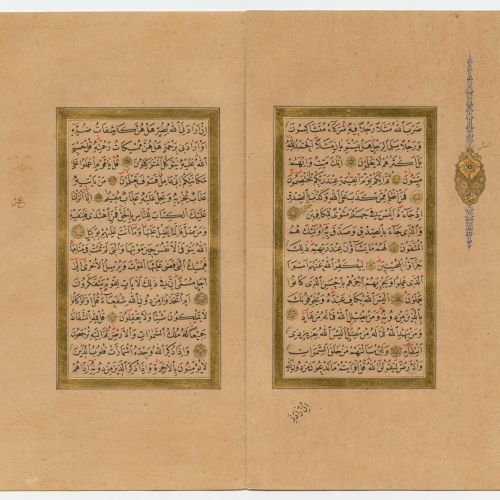 ضَرَبَ اللّٰهُ مَثَلًا رَجُلًا فِيهِ شُرَكَاءُ مُتَشَاكِسُونَ
وَرَجُلًا سَلَمًا لِرَجُلٍ هَلْ يَسْتَوِيَانِ مَثَلًا الْحَمْدُ لِلّٰهِ
بَلْ اَكْثَرُهُمْ لَا يَعْلَمُونَ اِنَّكَ مَيِّتٌ وَاِنَّهُمْ
مَيِّتُونَ ثُمَّ اِنَّكُمْ يَوْمَ الْقِيٰمَةِ عِنْدَ رَبِّكُمْ تَخْتَصِمُونَ
فَمَنْ اَظْلَمُ مِمَّنْ كَذَبَ عَلَى اللّٰهِ وَكَذَّبَ بِالصِّدْقِ
اِذْ جَاءَهُ اَلَيْسَ فِي جَهَنَّمَ مَثْوًى لِلْكَافِرِينَ
وَالَّذِي جَاءَ بِالصِّدْقِ وَصَدَّقَ بِهِ اُولٰئِكَ هُمُ
الْمُتَّقُونَ لَهُمْ مَا يَشَاؤُنَ عِنْدَ رَبِّهِمْ ذٰلِكَ
جَزَاءُ الْمُحْسِنِينَ لِيُكَفِّرَ اللّٰهُ عَنْهُمْ اَسْوَاَ
الَّذِي عَمِلُوا وَيَجْزِيَهُمْ اَجْرَهُمْ بِاَحْسَنِ الَّذِي كَانُوا
يَعْمَلُونَ اَلَيْسَ اللّٰهُ بِكَافٍ عَبْدَهُ وَيُخَوِّفُونَكَ
بِالَّذِينَ مِنْ دُونِهِ وَمَنْ يُضْلِلِ اللّٰهُ فَمَا لَهُ مِنْ هَادٍ
وَمَنْ يَهْدِ اللّٰهُ فَمَا لَهُ مِنْ مُضِلٍّ اَلَيْسَ اللّٰهُ بِعَزِيزٍ ذِي
انْتِقَامٍ وَلَئِنْ سَاَلْتَهُمْ مَنْ خَلَقَ السَّمٰوَاتِ
وَالْاَرْضَ لَيَقُولُنَّ اللّٰهُ قُلْ اَفَرَاَيْتُمْ مَا تَدْعُونَ مِنْ دُونِ اللّٰهِ
اِنْ اَرَادَنِيَ
اِنْ اَرَادَنِيَ اللّٰهُ بِضُرٍّ هَلْ هُنَّ كَاشِفَاتُ ضُرِّهِ
اَوْ اَرَادَنِي بِرَحْمَةٍ هَلْ هُنَّ مُمْسِكَاتُ رَحْمَتِهِ قُلْ حَسْبِيَ
اللّٰهُ عَلَيْهِ يَتَوَكَّلُ الْمُتَوَكِّلُونَ قُلْ يَا قَوْمِ اعْمَلُوا عَلٰى
مَكَانَتِكُمْ اِنِّي عَامِلٌ فَسَوْفَ تَعْلَمُونَ مَنْ يَاْتِيهِ
عَذَابٌ يُخْزِيهِ وَيَحِلُّ عَلَيْهِ عَذَابٌ مُقِيمٌ اِنَّا اَنْزَلْنَا
عَلَيْكَ الْكِتَابَ لِلنَّاسِ بِالْحَقِّ فَمَنِ اهْتَدٰى فَلِنَفْسِهِ
وَمَنْ ضَلَّ فَاِنَّمَا يَضِلُّ عَلَيْهَا وَمَا اَنْتَ عَلَيْهِمْ بِوَكِيلٍ
اللّٰهُ يَتَوَفَّى الْاَنْفُسَ حِينَ مَوْتِهَا وَالَّتِي لَمْ تَمُتْ فِي مَنَامِهَا
فَيُمْسِكُ الَّتِي قَضٰى عَلَيْهَا الْمَوْتَ وَيُرْسِلُ الْاُخْرٰى اِلٰى
اَجَلٍ مُسَمًّى اِنَّ فِي ذٰلِكَ لَاٰيَاتٍ لِقَوْمٍ يَتَفَكَّرُونَ
اَمِ اتَّخَذُوا مِنْ دُونِ اللّٰهِ شُفَعَاءَ قُلْ اَوَلَوْ كَانُوا
لَا يَمْلِكُونَ شَيْئًا وَلَا يَعْقِلُونَ قُلْ لِلّٰهِ الشَّفَاعَةُ
جَمِيعًا لَهُ مُلْكُ السَّمٰوَاتِ وَالْاَرْضِ ثُمَّ اِلَيْهِ تُرْجَعُونَ
وَاِذَا ذُكِرَ اللّٰهُ وَحْدَهُ اشْمَاَزَّتْ قُلُوبُ الَّذِينَ
لَا يُؤْمِنُونَ بِالْاٰخِرَةِ وَاِذَا ذُكِرَ الَّذِينَ مِنْ دُونِهِ اِذَا هُمْ